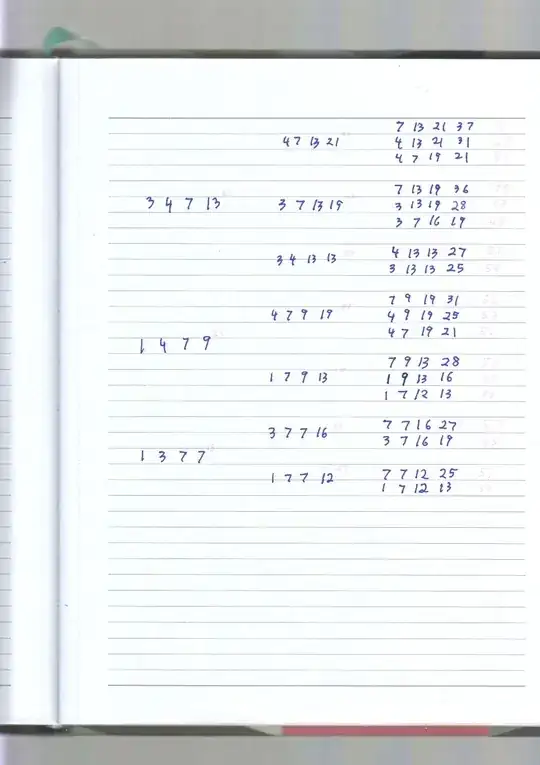 7 13 21 37
4 7 13 21
4 13 21 31
4 7 19 21
7 13 19 36
3 4 7 13
3 7 13 19
3 13 19 28
3 7 16 19
4 13 13 27
3 4 13 13
3 13 13 25
7 9 19 31
4 7 9 19
4 9 19 25
4 7 19 21
1 4 7 9
7 9 13 28
1 7 9 13
1 9 13 16
1 7 12 13
7 7 16 27
3 7 7 16
3 7 16 19
1 3 7 7
7 7 12 25
1 7 7 12
1 7 12 13